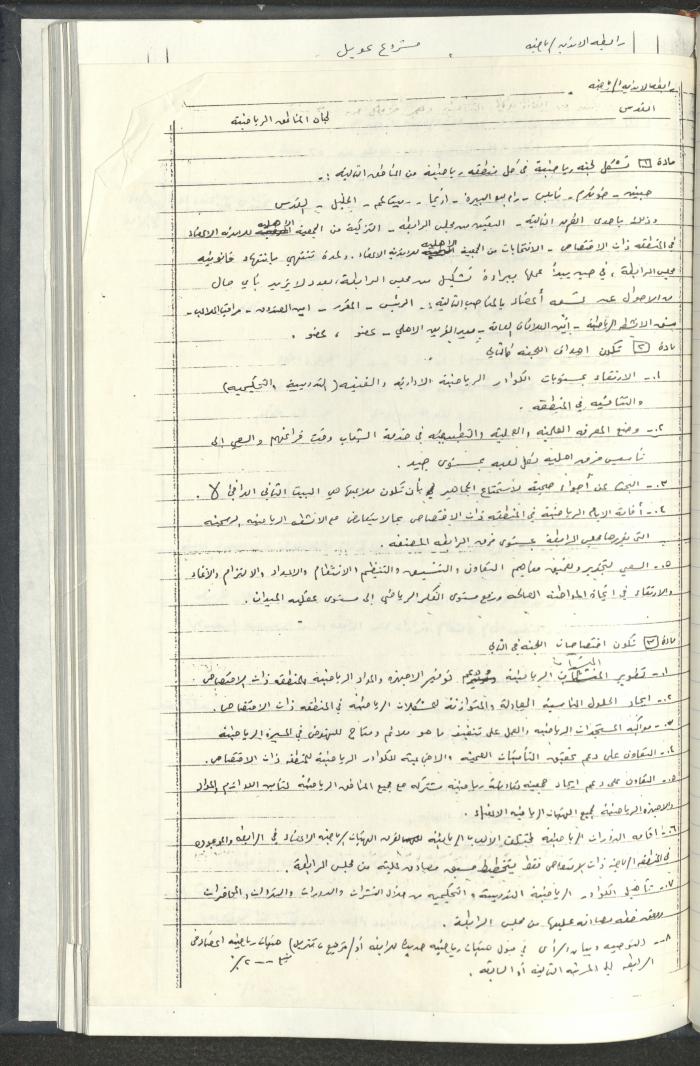 رابطة الاندية الرياضية مشروع تعديل
رابطة الاندية الرياضية
القدس
لجان المناطق الرياضية
مادة ١ تشكل لجنة رياضية في كل منطقة رياضية من المناطق التالية :-
جنين - طولكرم - نابلس - رام الله والبيرة - اريحا - بيت لحم - الخليل - القدس
وذلك باحدى الطرق التالية - التعيين من مجلس الرابطة - التزكية من الجمعية الأهلية للاندية الاعضاء
في المنطقة ذات الاختصاص - الانتخابات من الجمعية الأهلية للاندية الاعضاء . ولمدة تنتهي بانتهاء قانونية
مجلس الرابطة ، في حين يبدأ عملها بمبررات تشكيل من مجلس الرابطة ، بعدد لا يزيد بأي حال
من الاحوال عن تسعة أعضاء بالمناصب التالية :- الرئيس - المقرر - امين الصندوق - مراقب الملاعب -
منسق الانشطة الرياضية - أمين العلاقات العامة - مدير التدريب الاهلي - عضو ، عضو .
مادة ٢ تكون اهداف اللجنة كالتالي
١- الارتقاء بمستويات الكوادر الرياضية الادارية والفنية ( التدريبية والتحكيمية )
والتنافسية في المنطقة .
٢- وضع المعرفة العلمية والعملية والتطبيقية في خدمة الشباب وقت فراغهم والسعي إلى
تأسيس فرق اهلية لكل لعبة بمستوى جيد .
٣- البحث عن أجواء صحية لاستمتاع الجماهير بأن تكون ملاعبها هي البيت الثاني الدافئ لا .
٤- أقامة الايام الرياضية في المنطقة ذات الاختصاص بما لا يتعارض مع الانشطة الرياضية الرسمية
التي يقررها مجلس الرابطة بمستوى فرق الرابطة المصنفة .
٥- السعي لتجذير وتعميق مفاهيم التعاون والتنسيق والتنظيم والانتظام والاعداد والالتزام والاتحاد
والارتقاء في اتجاه المواطنة الصالحة ورفع مستوى الفكر الرياضي إلى مستوى عقلية الميدان .
مادة ٣ تكون اختصاصات اللجنة في التالي
١- تطوير المنشآت الرياضية توفير الاجهزة والمواد الرياضية للمنطقة ذات الاختصاص .
٢- ايجاد الحلول المناسبة العادلة والمتوازنة لمشكلات الرياضة في المنطقة ذات الاختصاص .
٣- مواكبة المستجدات الرياضية والعمل على تنفيذ ما هو ملائم ومتاح للنهوض في المسيرة الرياضية
٤- التعاون على دعم تحقيق التأمينات الصحية والاجتماعية للكوادر الرياضية للمنطقة ذات الاختصاص .
٥- التعاون على دعم ايجاد جمعية تعاونية رياضية مشتركة مع جميع المناطق الرياضية لتأمين اللوازم والمواد
والاجهزة الرياضية لجميع الهيئات الرياضية الاعضاء .
٦- اقامة الدورات الرياضية لمختلف الألعاب الرياضية لفرق الهيئات الرياضية الاعضاء في الرابطة والموجودة
في المنطقة الرياضية ذات الاختصاص فقط بتخطيط مسبق مصادق عليه من مجلس الرابطة .
٧- تأهيل الكوادر الرياضية التدريبية والتحكيمية من خلال النشرات والدورات والندوات والمحاضرات
وفق خطة مصادق عليها من مجلس الرابطة .
٨- التوصية وبيان الرأي في قبول هيئات رياضية جديدة للرابطة أو/ترفيع ( تنزيل ) هيئات رياضية اعضاء في
الرابطة إلى المرتبة التالية أو السابقة .
يتبع ---٢/